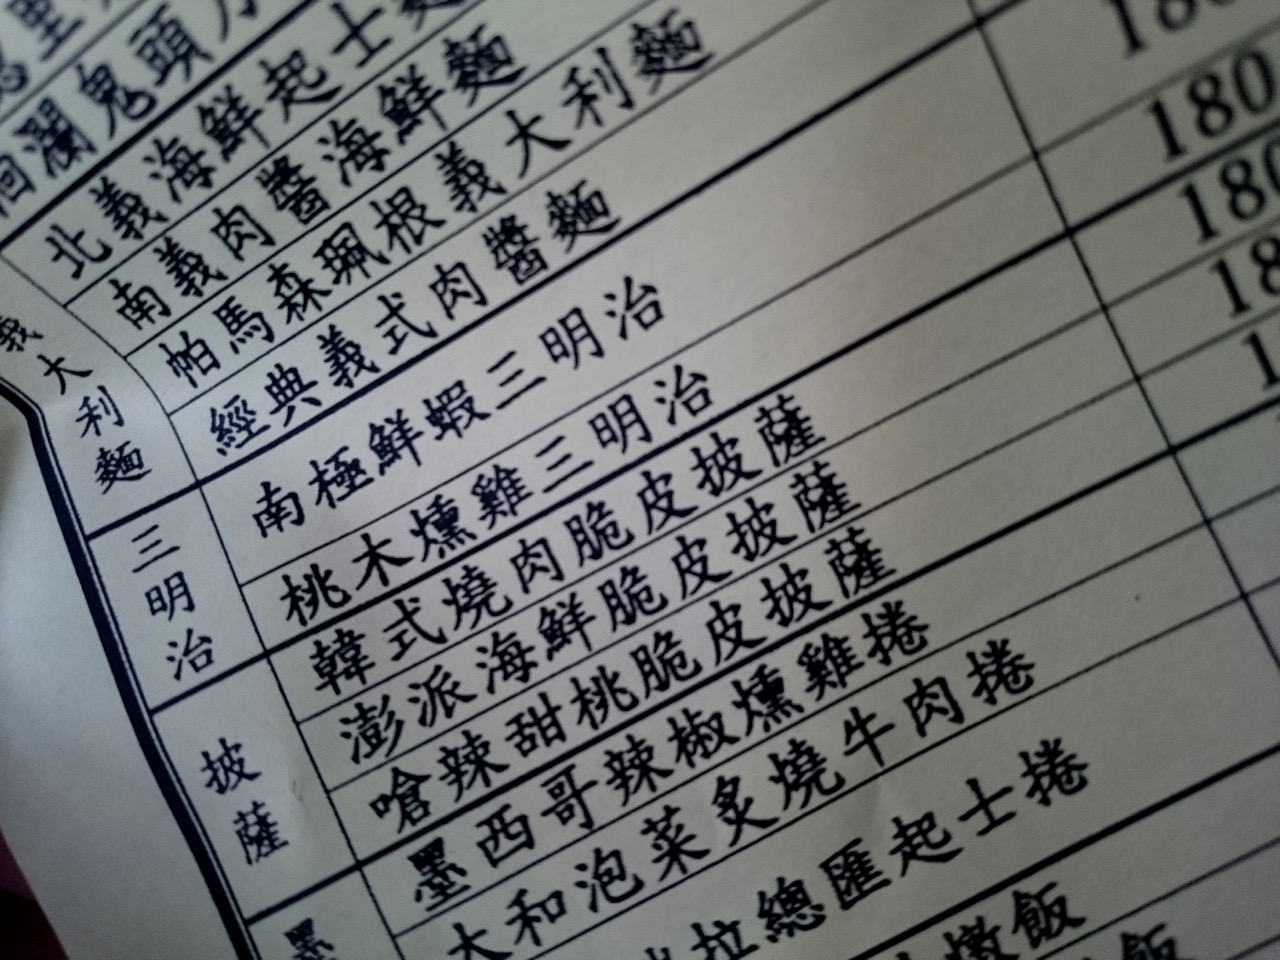 瀾鬼頭
北義海鮮起士
南義肉醬海鮮麵
180
帕馬森珮根義大利麵
180
經典義式肉醬麵
180
義大利麵
南極鮮蝦三明治
桃木燻雞三明治
三明治
韓式燒肉脆皮披薩
澎派海鮮脆皮披薩
嗆辣甜桃脆皮披薩
披薩
墨西哥辣椒燻雞捲
大和泡菜炙燒牛肉捲
拉總匯起士捲
墨
燉飯
飯